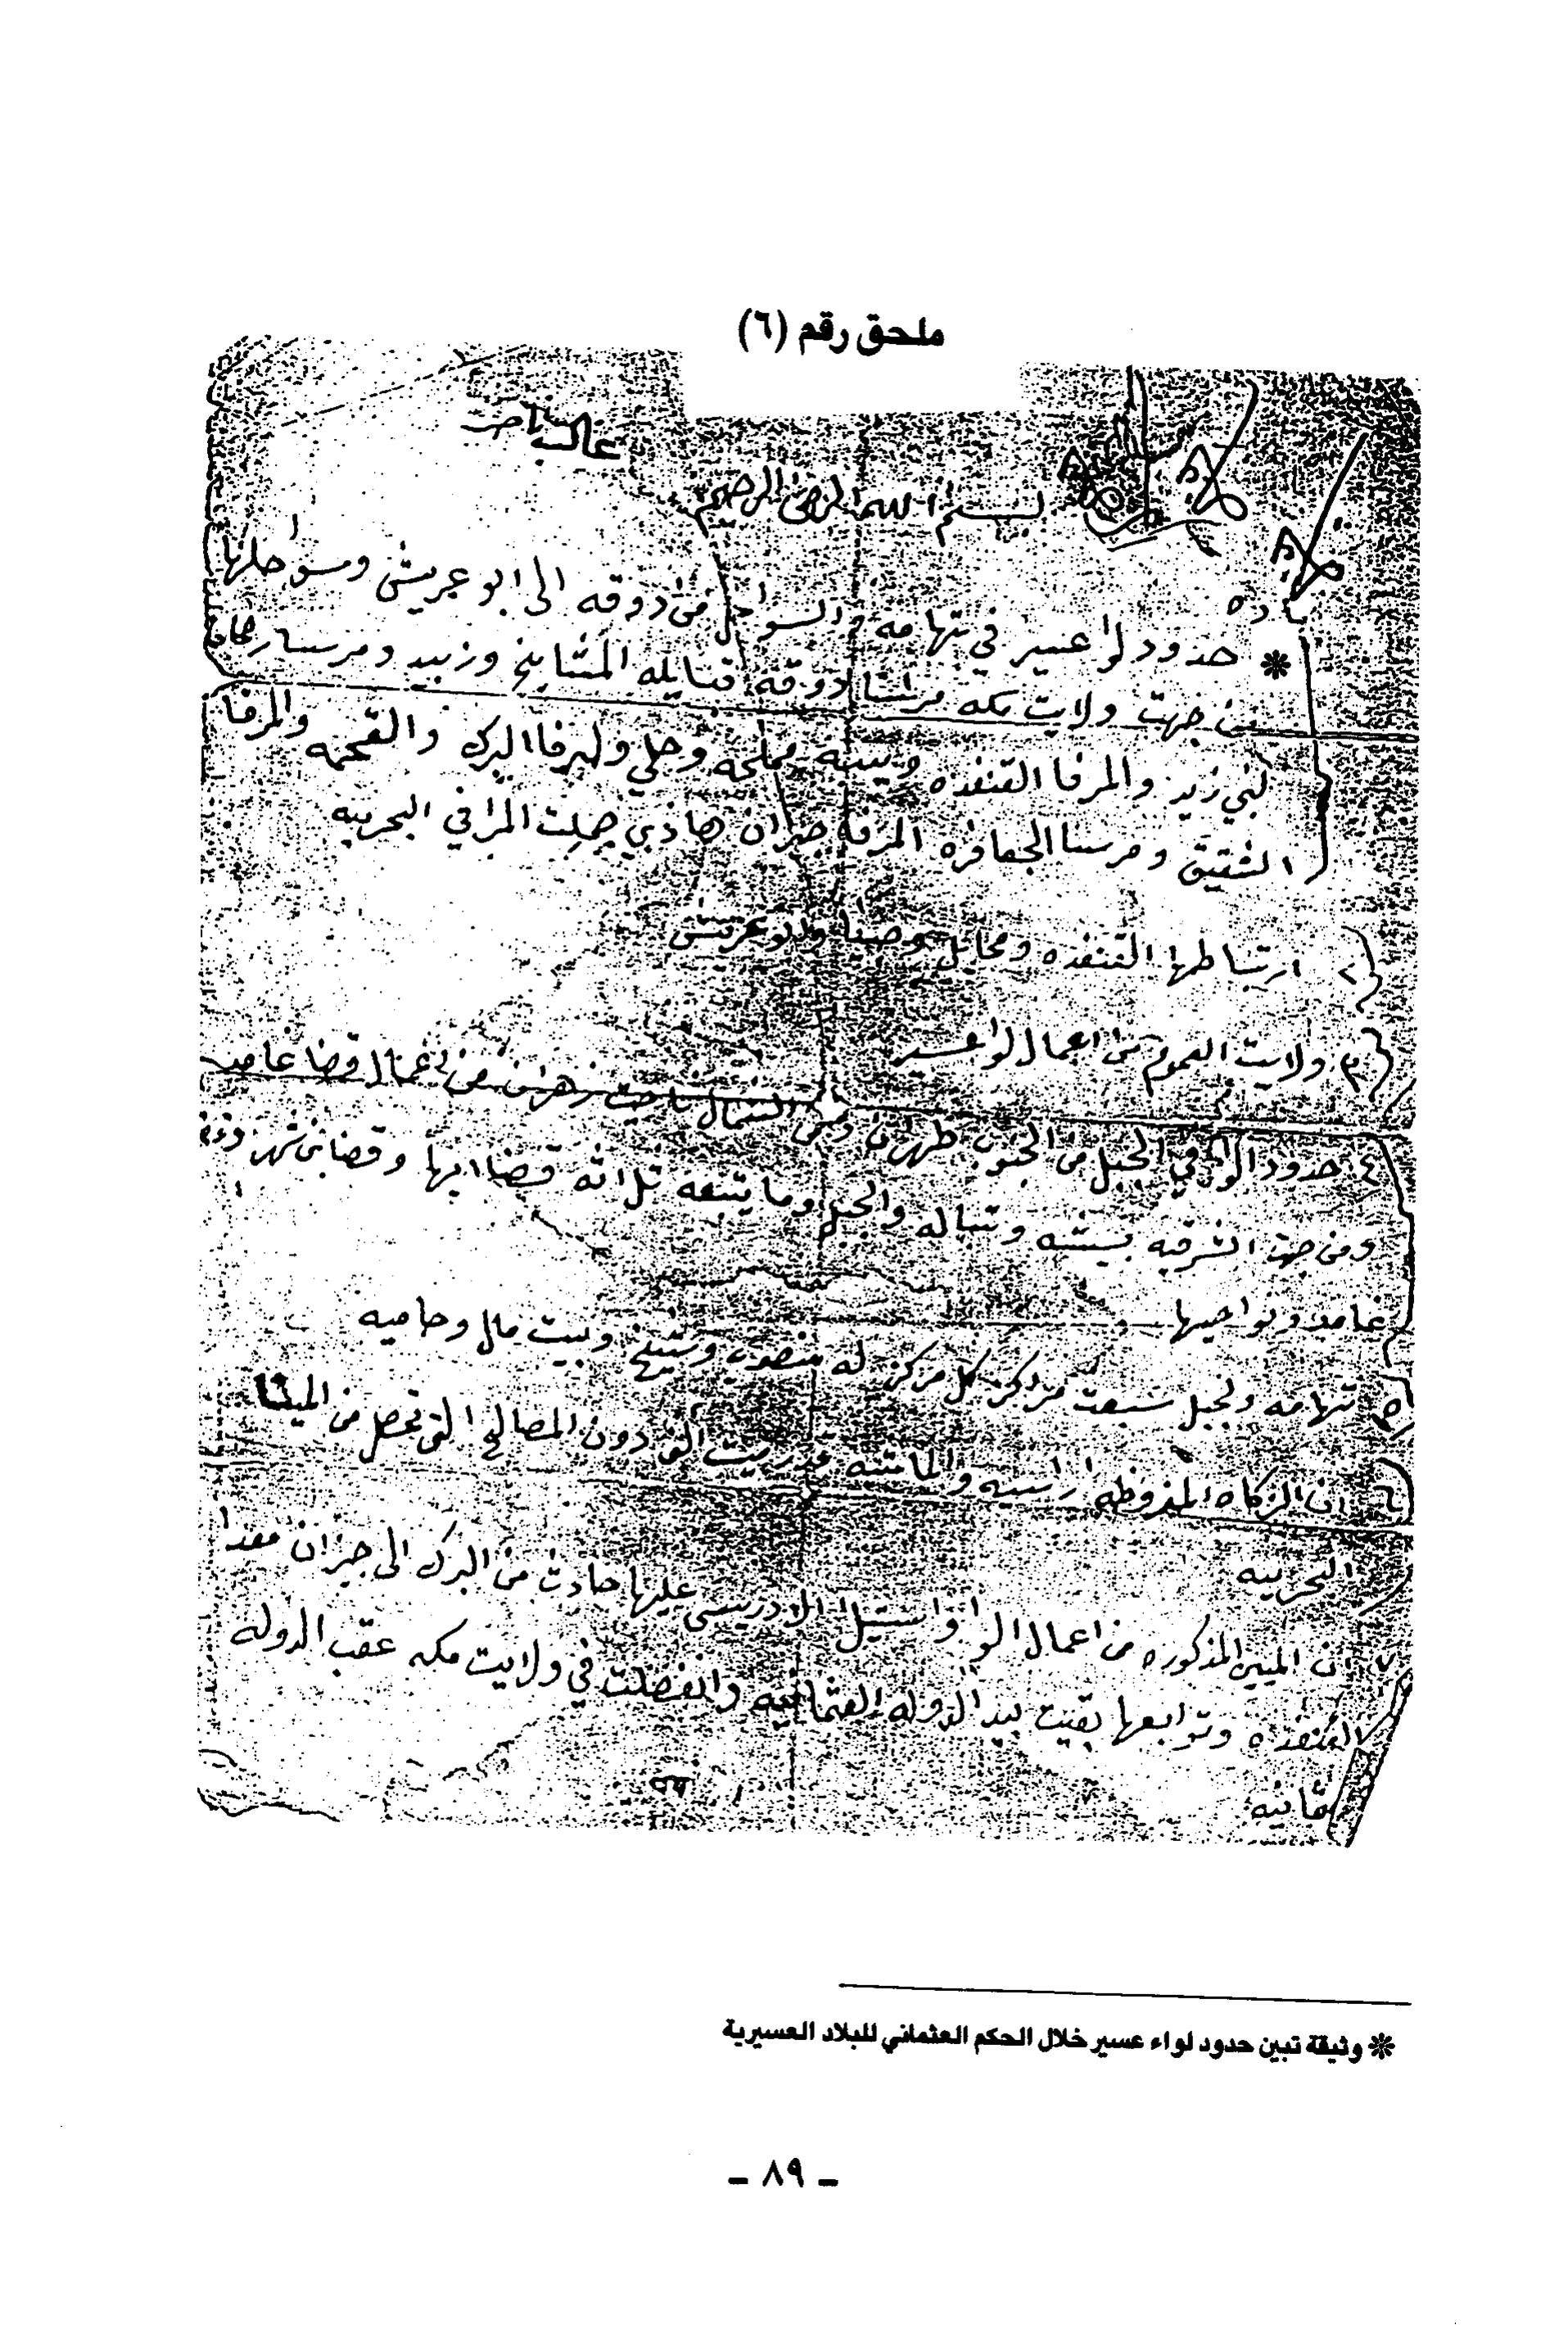 ملحق رقم (٦)
بسم الله الرحمن الرحيم
ماده
* حدود لوا عسير في تهامة والسواحل من دوقه الى ابو عريش وسواحلها
من جهت ولايت مكه مرسا دوقة قبايله المشايخ وزبيد ومرسا
لبني زيد والمرفا القنفذه ويبيه مملحه وحلي ولمرفا البرك والقحمه والمرفا
الشقيق ومرسا الجعافره المرفا جيزان هاذي جملت المرافي البحريه
٢ ارتباطها القنفذه ومحايل وصبيا وابو عريش
٣ ولايت العموم من اعمال لوا عسير
٤ حدود الوا في الجبل من الجنوب ظهران ومن الشمال ناحيت زهران من اعمال قضا غامد
ومن جهت الشرقيه بيشه وتباله والجبل وما يتبعه ثلاثه قضا ابها وقضا بني شهر وقضا
غامد ونواحيها
٥ تهامه ولجبل سبعت مراكز كل مركز له منصوب وشيخ وبيت مال وحاميه
٦ ان الزكاه المفروظه والماشيه دون المصالح التي تحصل من المينا
البحريه
٧ ان المبين المذكوره من اعمال الوا واستيلا الادريسي عليها حادث من البرك الى جيزان معدا
القنفذه وتوابعها بقيت بيد الدوله العثمانيه وانفصلت في ولايت مكه عقب الدوله
* وثيقة تبين حدود لواء عسير خلال الحكم العثماني للبلاد العسيرية
- ٨٩ -